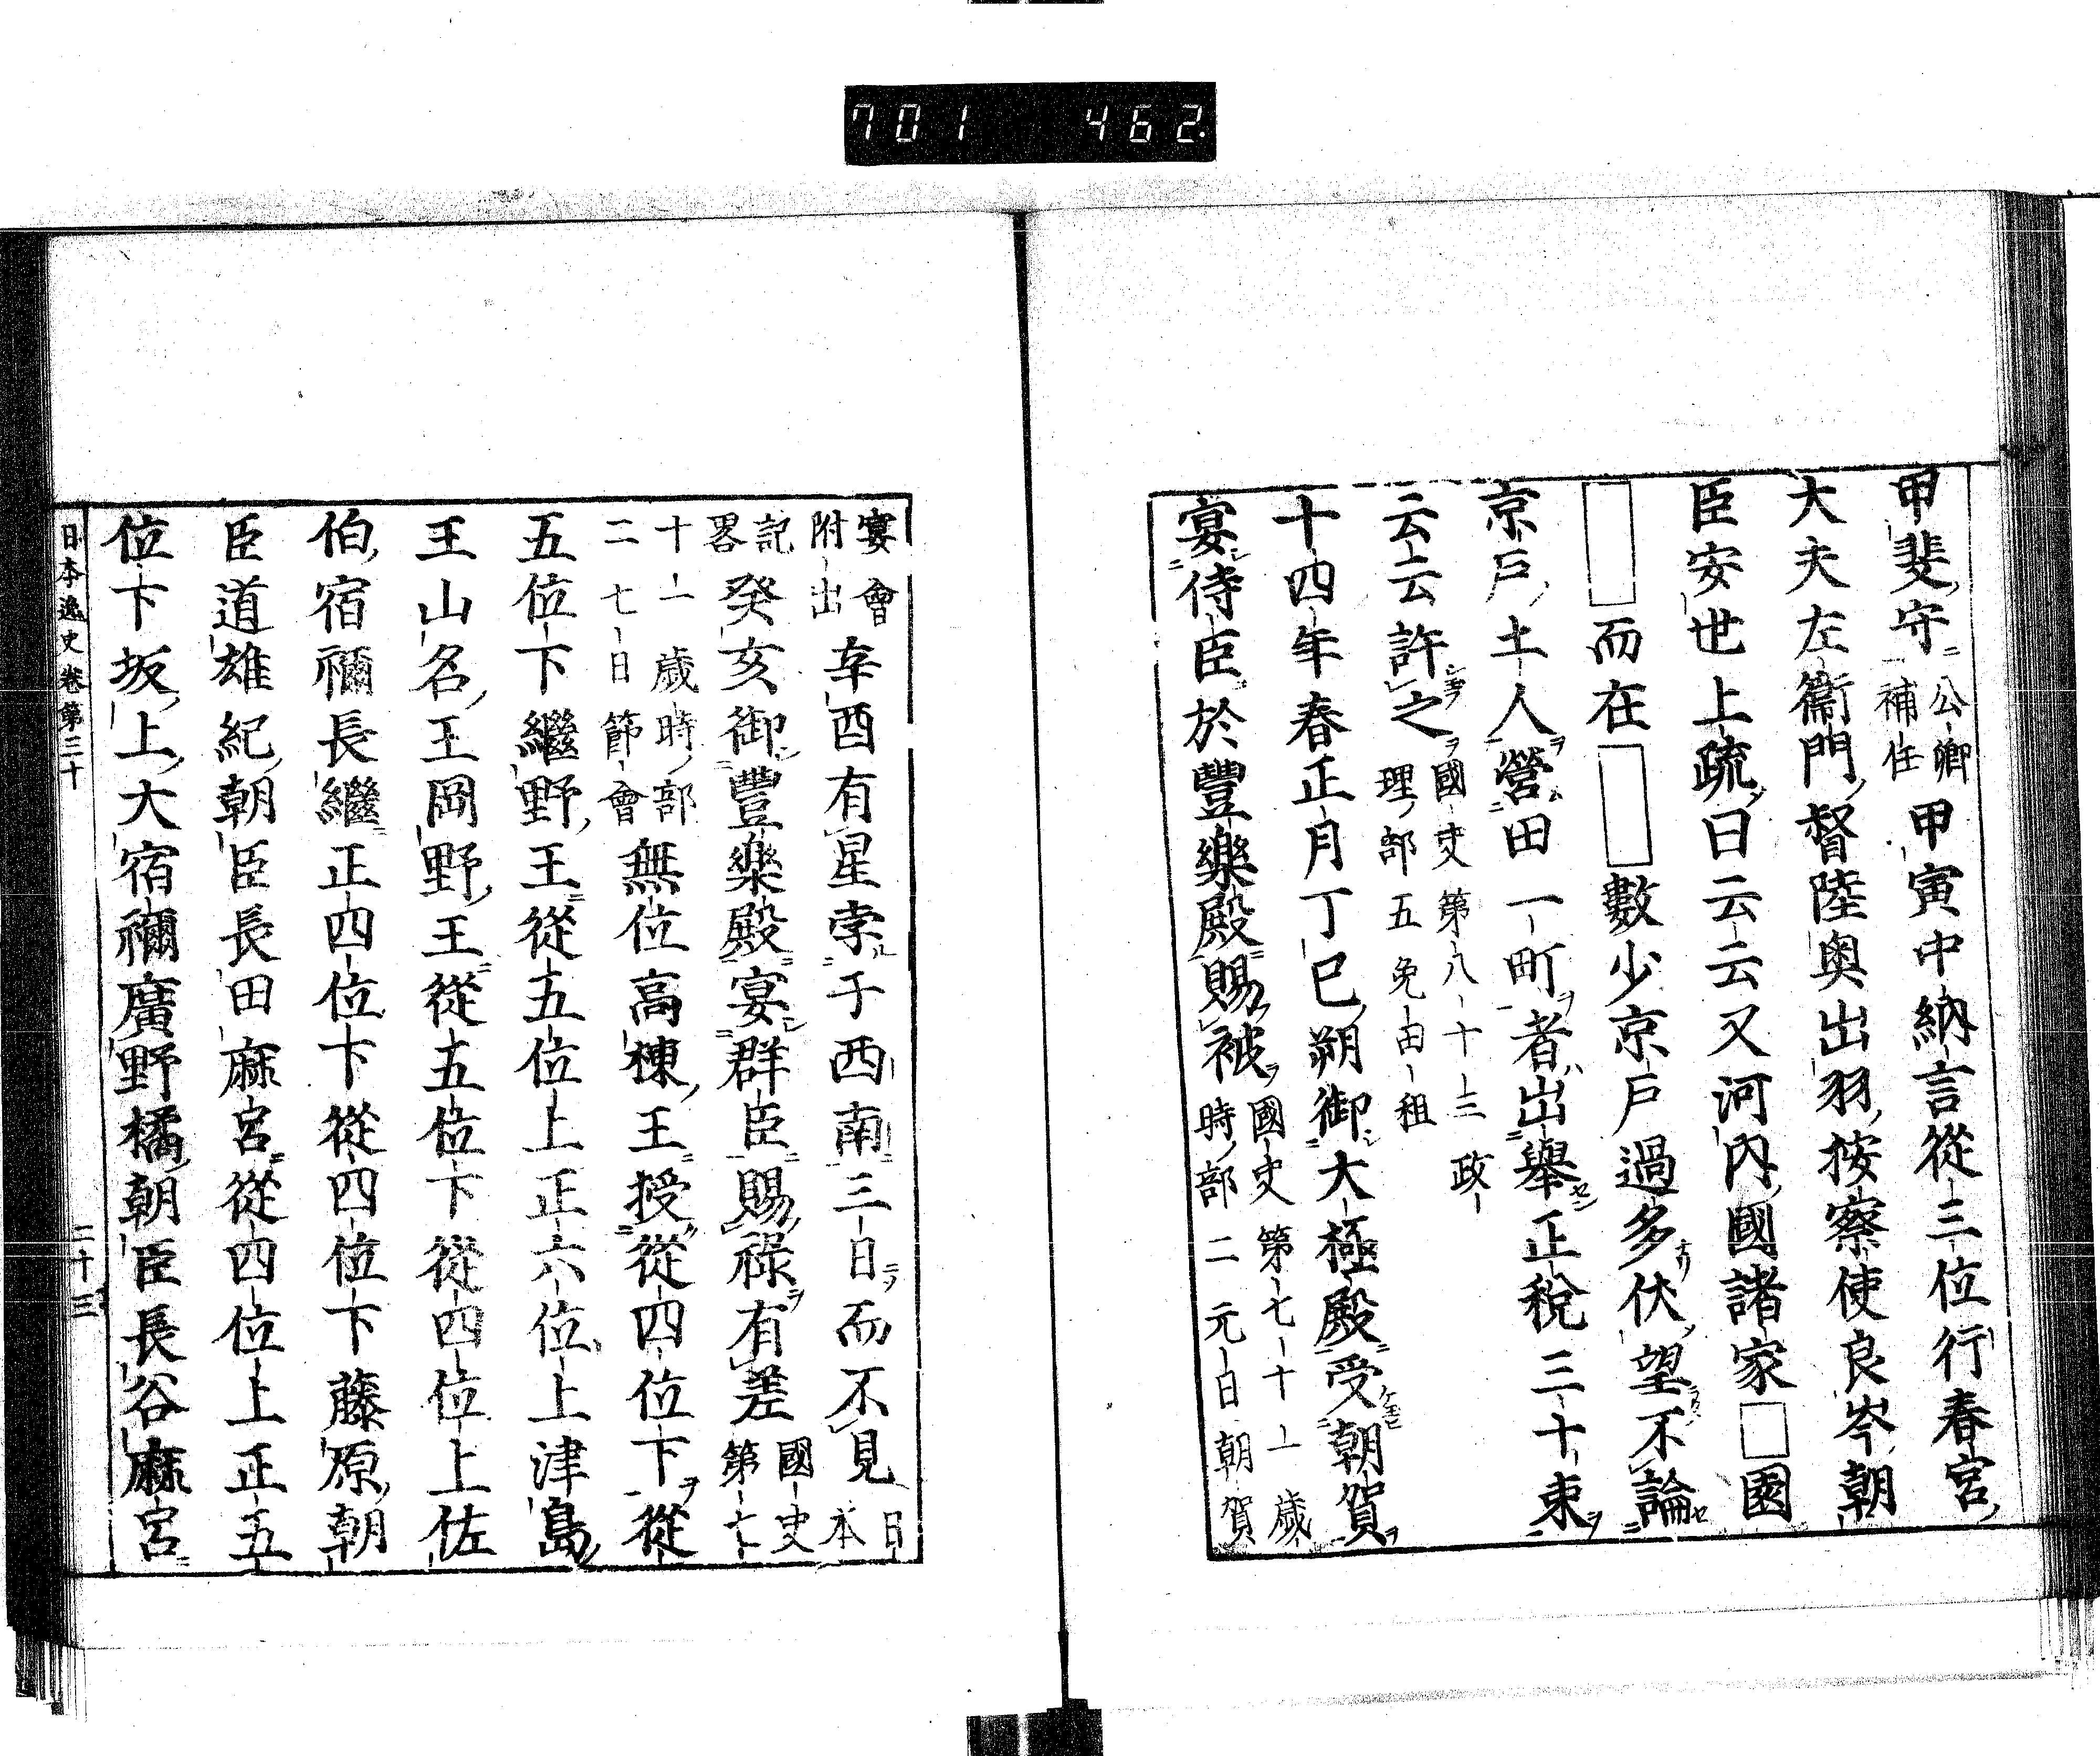 701 462
甲斐守公卿補任甲寅中納言從三位行春宮
大夫左衞門督陸奥出羽按察使良岑朝
臣安世上疏曰云云又河內國諸家□國
□而在□數少京戶過多伏望不論
京戶土人營田一町者出舉正稅三十束
云云許之國史第八十三政理部五免由租
十四年春正月丁巳朔御大極殿受朝賀
宴侍臣於豐樂殿賜被國史第七十一歲時部二元日朝賀
宴會附出辛酉有星孛于西南三日而不見日本
記畧癸亥御豐樂殿宴群臣賜祿有差國史第七
十一歲時部二七日節會無位高棟王授從四位下從
五位下繼野王從五位上正六位上津島
王山名王岡野王從五位下從四位上佐
伯宿禰長繼正四位下從四位下藤原朝
臣道雄紀朝臣長田麻呂從四位上正五
位下坂上大宿禰廣野橘朝臣長谷麻呂
日本逸史卷第三十 二十三